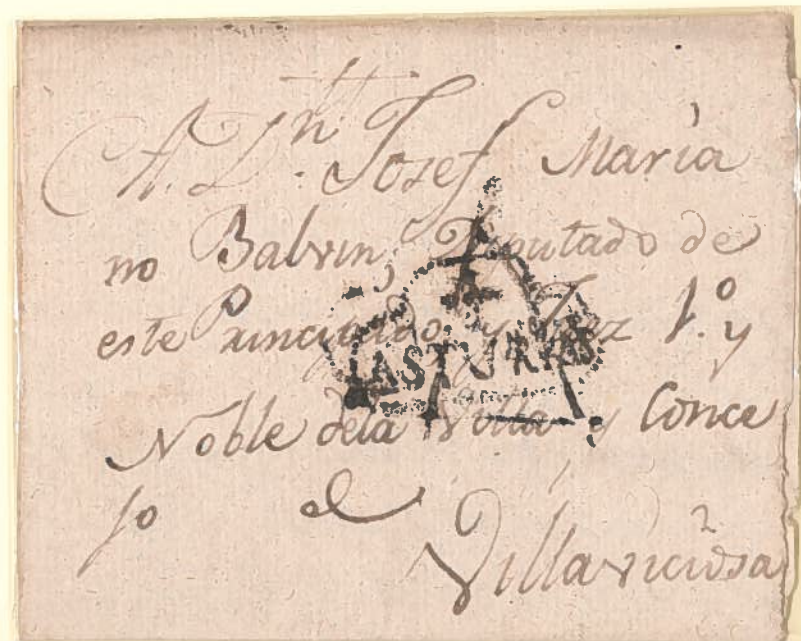 A. Dn. Josef Maria
no Balvin, Diputado de
este Principado, y Juez 1.º y
Noble dela Villa y Conce
jo el
Villaviciosa
ASTURIAS